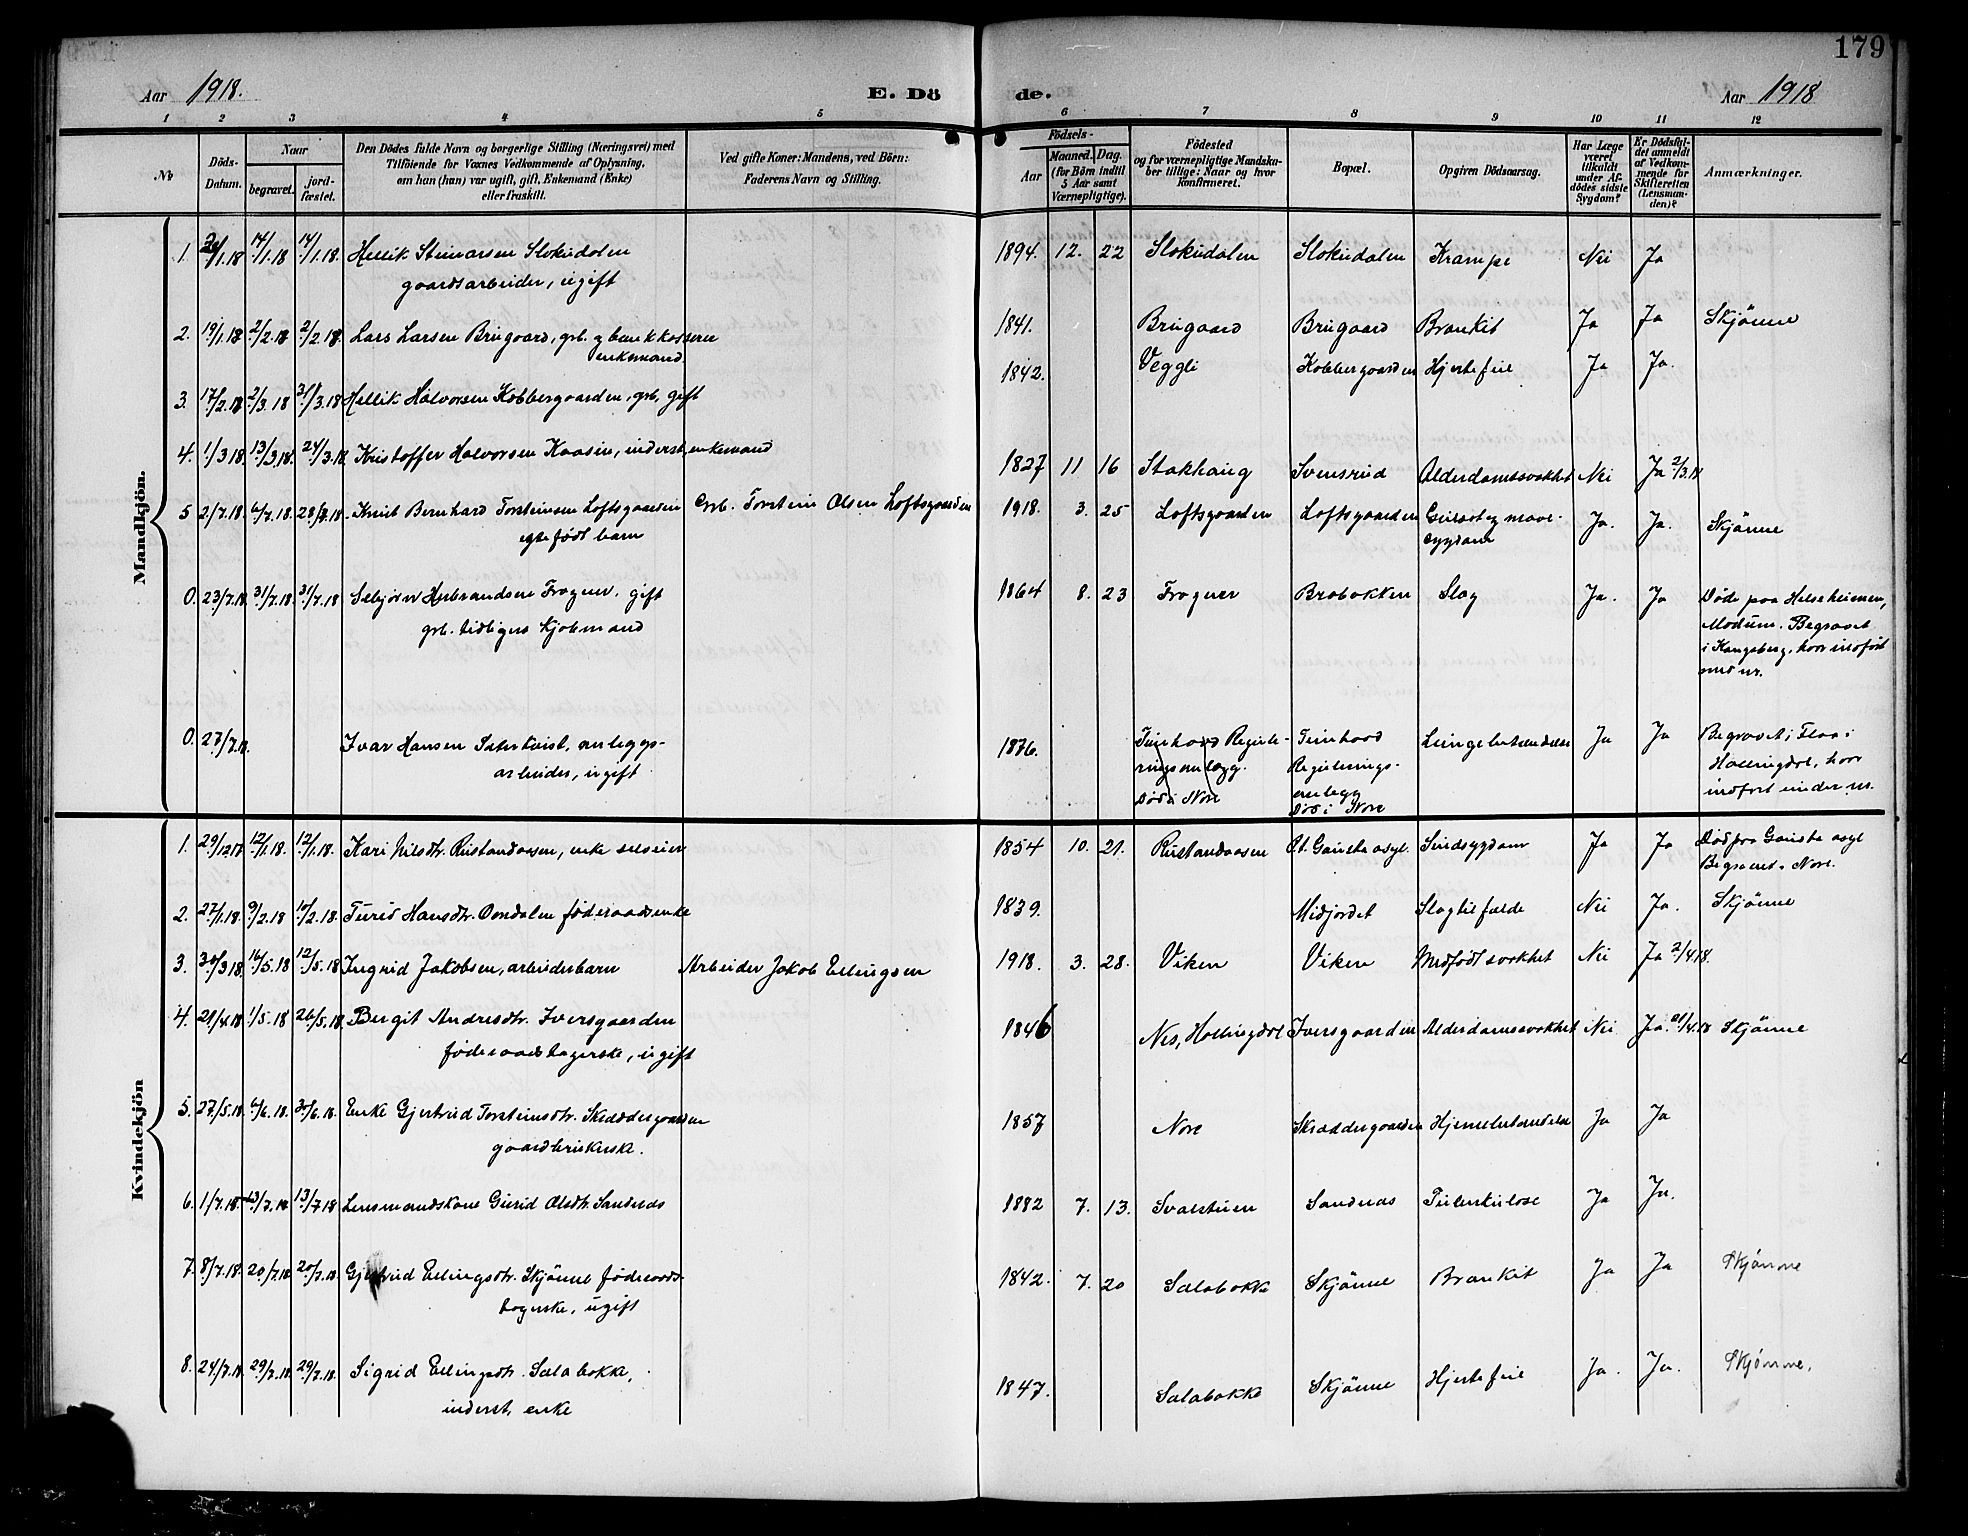 179
Aar 1918.
E. Dö
de.
Aar 1918
1 2 3 4 5 6 7 8 9 10 11 12
No
Döds-
Datum.
Naar
begravet.
jord-
fæstet.
Den Dödes fulde Navn og borgerlige Stilling (Næringsvei) med
Tilföiende for Voxnes Vedkommende af Oplysning,
om han (hun) var ugift, gift, Enkemand (Enke)
eller fraskilt.
Ved gifte Koner: Mandens, ved Börn:
Faderens Navn og Stilling.
Födsels-
Aar
Maaned. Dag.
(for Börn indtil
5 Aar samt
Værnepligtige).
Födested
og for værnepligtige Mandska-
ber tillige: Naar og hvor
konfirmeret.
Bopæl.
Opgiven Dödsaarsag.
Har Læge
været
tilkaldt
under Af-
dödes sidste
Sygdom?
Er Dödsfal-
det anmeldt
af Vedkom-
mende for
Skifteretten
(Lensman-
den)?
Anmærkninger.
Mandkjön.
1. 14/1.18 14/1.18. Hellik Steinarsen Slokudalen 1894. 12. 22 Slokudalen Slokudalen Krampe Nei Ja
gaardsarbeider, ugift
2. 19/1.18 2/2.18 2/2.18. Lars Larsen Brugaard, grb. og bankkasserer 1841. Brugaard Brugaard Bronkit Ja Ja Skjönne
enkemand.
3. 17/2.18 2/3.18 31/3.18 Hellik Halvorsen Kobbergaarden, grb, gift 1842. Veggli Kobbergaarden Hjertefeil Ja Ja.
4. 1/3.18. 13/3.18. 24/3.18. Kristoffer Halvorsen Kaasin, inderst, enkemand 1827 11 16 Stakhaug Svensrud Alderdomssvakhet Nei Ja 2/3.18
5 2/7.18. 6/7.18. 28/7.18. Knut Bernhard Torsteinsen Loftsgaarden Grb. Torstein Olsen Loftsgaarden 1918. 3. 25 Loftsgaarden Loftsgaarden mave- Ja. Ja. Skjönne
egtefödt barn
sygdom
0. 23/7.18. 31/7.18. 31/7.18 Sebjörn Herbrandsen Frogner, gift 1864 8. 23 Frogner Brobakken Slag Ja. Ja Döde paa Helseheimen,
grb. tidligere Kjöbmand
Modum. Begravet
i Kongsberg, hvor indfört
med nr.
0. 27/7.18. Ivar Hansen anleggs- 1876. Tunhovd Regule- Tunhovd Lungebetændelse Ja Ja Begravet i Flaa i
arbeider, ugift
ringsanlegg.
Död i Nore
Regulerings-
anlegg
Död i Nore
Hallingdal, hvor
indfört under nr.
Kvindekjön
1. 29/12 17 12/1.18. 12/1.18. Kari Nilsdtr. Rustandaasen, enke selveier 1854 10. 21. Rustandaasen Gausta asyl. Sindsygdom Ja Ja Död paa Gausta asyl
Begravet i Nore.
2. 27/1.18. 9/2.18 Turid Hansdtr. Oendalen föderaadsenke 1839. Midjordet Slagtilfælde Nei Ja. Skjönne
3. 30/3 18. 16/5.18 12/5.18 Ingrid Jakobsen, arbeiderbarn Arbeider Jakob Erlingsen 1918. 3. 28. Viken Viken Medfödt svakhet Nei Ja 2/4.18.
4. 21/4.18 1/5.18 26/5.18. Bergit Andresdtr. Iversgaarden 1846 Nes, Hallingdal Iversgaarden Alderdomssvakhet Nei Ja. 21/4.18 Skjönne
föderaadstagerske, ugift
5. 27/5.18. 6/6.18. 30/6.18. Enke Gjertrud Torsteinsdtr. Skræddergaarden 1857 Nore Skræddergaarden Hjernebetændelse Ja Ja
gaardbrukerske.
6. 1/7.18. 13/7.18 13/7.18 Lensmandskone Gurid Olsdtr. Sandnæs 1882 7. 13. Svalstuen Sandnæs Tuberkulose Ja Ja.
7. 8/7.18. 20/7.18 20/7.18. Gjertrud Erlingsdtr. Skjönne föderaads- 1842. 7. 20 Salabakke Skjönne Bronkit Ja Ja Skjönne
tagerske, ugift
8. 24/7.18. 29/7.18. 29/7.18. Sigrid Erlingsdtr. Salabakke, 1847. Salabakke Skjönne Hjertefeil Ja. Ja. Skjönne.
inderst, enke